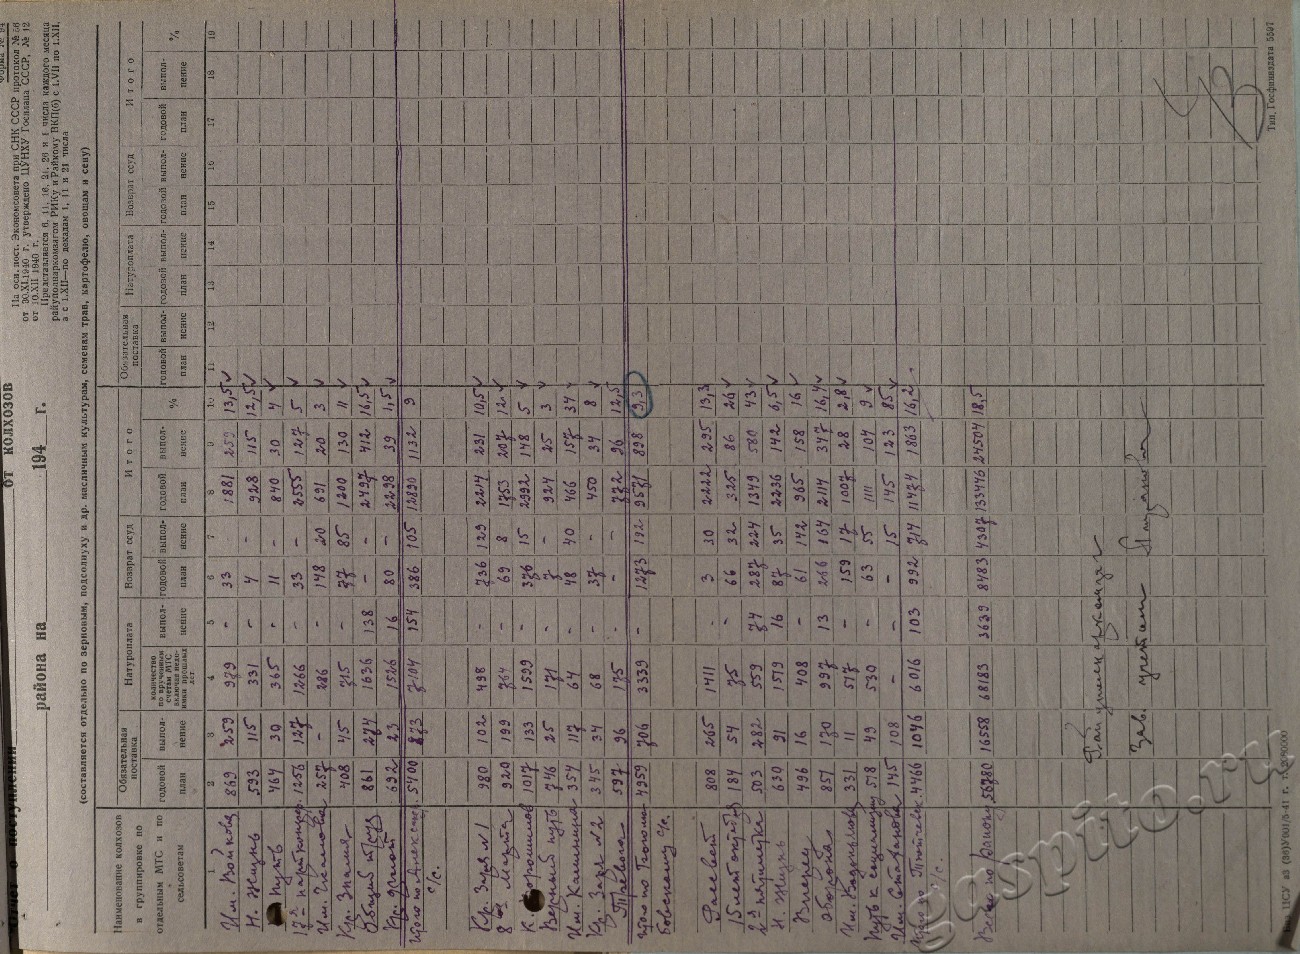 Форма № 94
На осн. пост. Экономсовета при СНК СССР протокол № 56
от 30.XI.1940 г. утверждено ЦУНХУ Госплана СССР, № 12
от 10.XII 1940 г.
Представляется 6, 11, 16, 21, 26 и 1 числа каждого месяца
райуполнаркомзагом РИКу и Райкому ВКП(б) с 1.VII по 1.XII,
а с 1.XII—по декадам 1, 11 и 21 числа
поступлении от колхозов
района на 194 г.
(составляется отдельно по зерновым, подсолнуху и др. масличным культурам, семенам трав, картофелю, овощам и сену)
Наименование колхозов в группировке по отдельным МТС и по сельсоветам | Обязательная поставка | Натуроплата | Возврат ссуд | Итого | Обязательная поставка | Натуроплата | Возврат ссуд | Итого
годовой план | выполнение | количество по врученным счетам МТС включая недоимки прошлых лет | выполнение | годовой план | выполнение | годовой план | выполнение | % | годовой план | выполнение | годовой план | выполнение | годовой план | выполнение | годовой план | выполнение | %
1 2 3 4 5 6 7 8 9 10 11 12 13 14 15 16 17 18 19
Им. Войкова 869 259 979 - 33 - 1881 259 13,5
Н. Жизнь 593 115 331 - 4 - 928 115 12,5
Путь 464 30 365 - 11 - 840 30 4
17й партконфер. 1256 127 1266 - 33 - 2555 127 5
Им. Чкалова 257 - 286 - 148 20 691 20 3
Кр. Знамя 408 45 715 - 77 85 1200 130 11
Общий труд 861 274 1636 138 - - 2497 412 16,5
Кр. 692 23 1526 16 80 - 2298 39 1,5
Итого по с/с. 5400 873 7104 154 386 105 12890 1132 9
Кр. Заря №1 980 102 498 - 736 129 2214 231 10,5
8е Марта 920 199 764 - 69 8 1753 207 12
К Ворошилова 1017 133 1599 - 376 15 2992 148 5
Верный путь 746 25 171 - 7 - 924 25 3
Им. Калинина 354 117 64 - 48 40 466 157 34
Кр. Заря №2 345 34 68 - 37 - 450 34 8
597 96 175 - - - 772 96 12,5
Итого по с/с. 4959 706 3339 - 1273 192 9571 898 9,3
Рассвет 808 265 1411 3 30 2222 295 13,3
15 лет октября 184 54 75 66 32 325 86 26
2я пятилетка 503 282 559 74 287 224 1349 580 43
Н. Жизнь 630 91 1519 16 87 35 2236 142 6,5
Вперед 496 16 408 - 61 142 965 158 16
Оборона 851 170 997 13 286 164 2114 347 16,4
Им. 331 11 517 - 159 17 1007 28 2,8
Путь к социализму 518 49 530 - 63 55 1111 104 9
Им. Стаханова 145 108 - - - 15 145 123 85
Итого с/с. 4466 1046 6016 103 992 714 11474 1863 16,2
Всего по району 56780 16558 68183 3639 8483 4307 133446 24504 18,5
Райуполнаркомзаг
Зав. учетом
Тип. Госфиниздата 5597
gaspito.ru